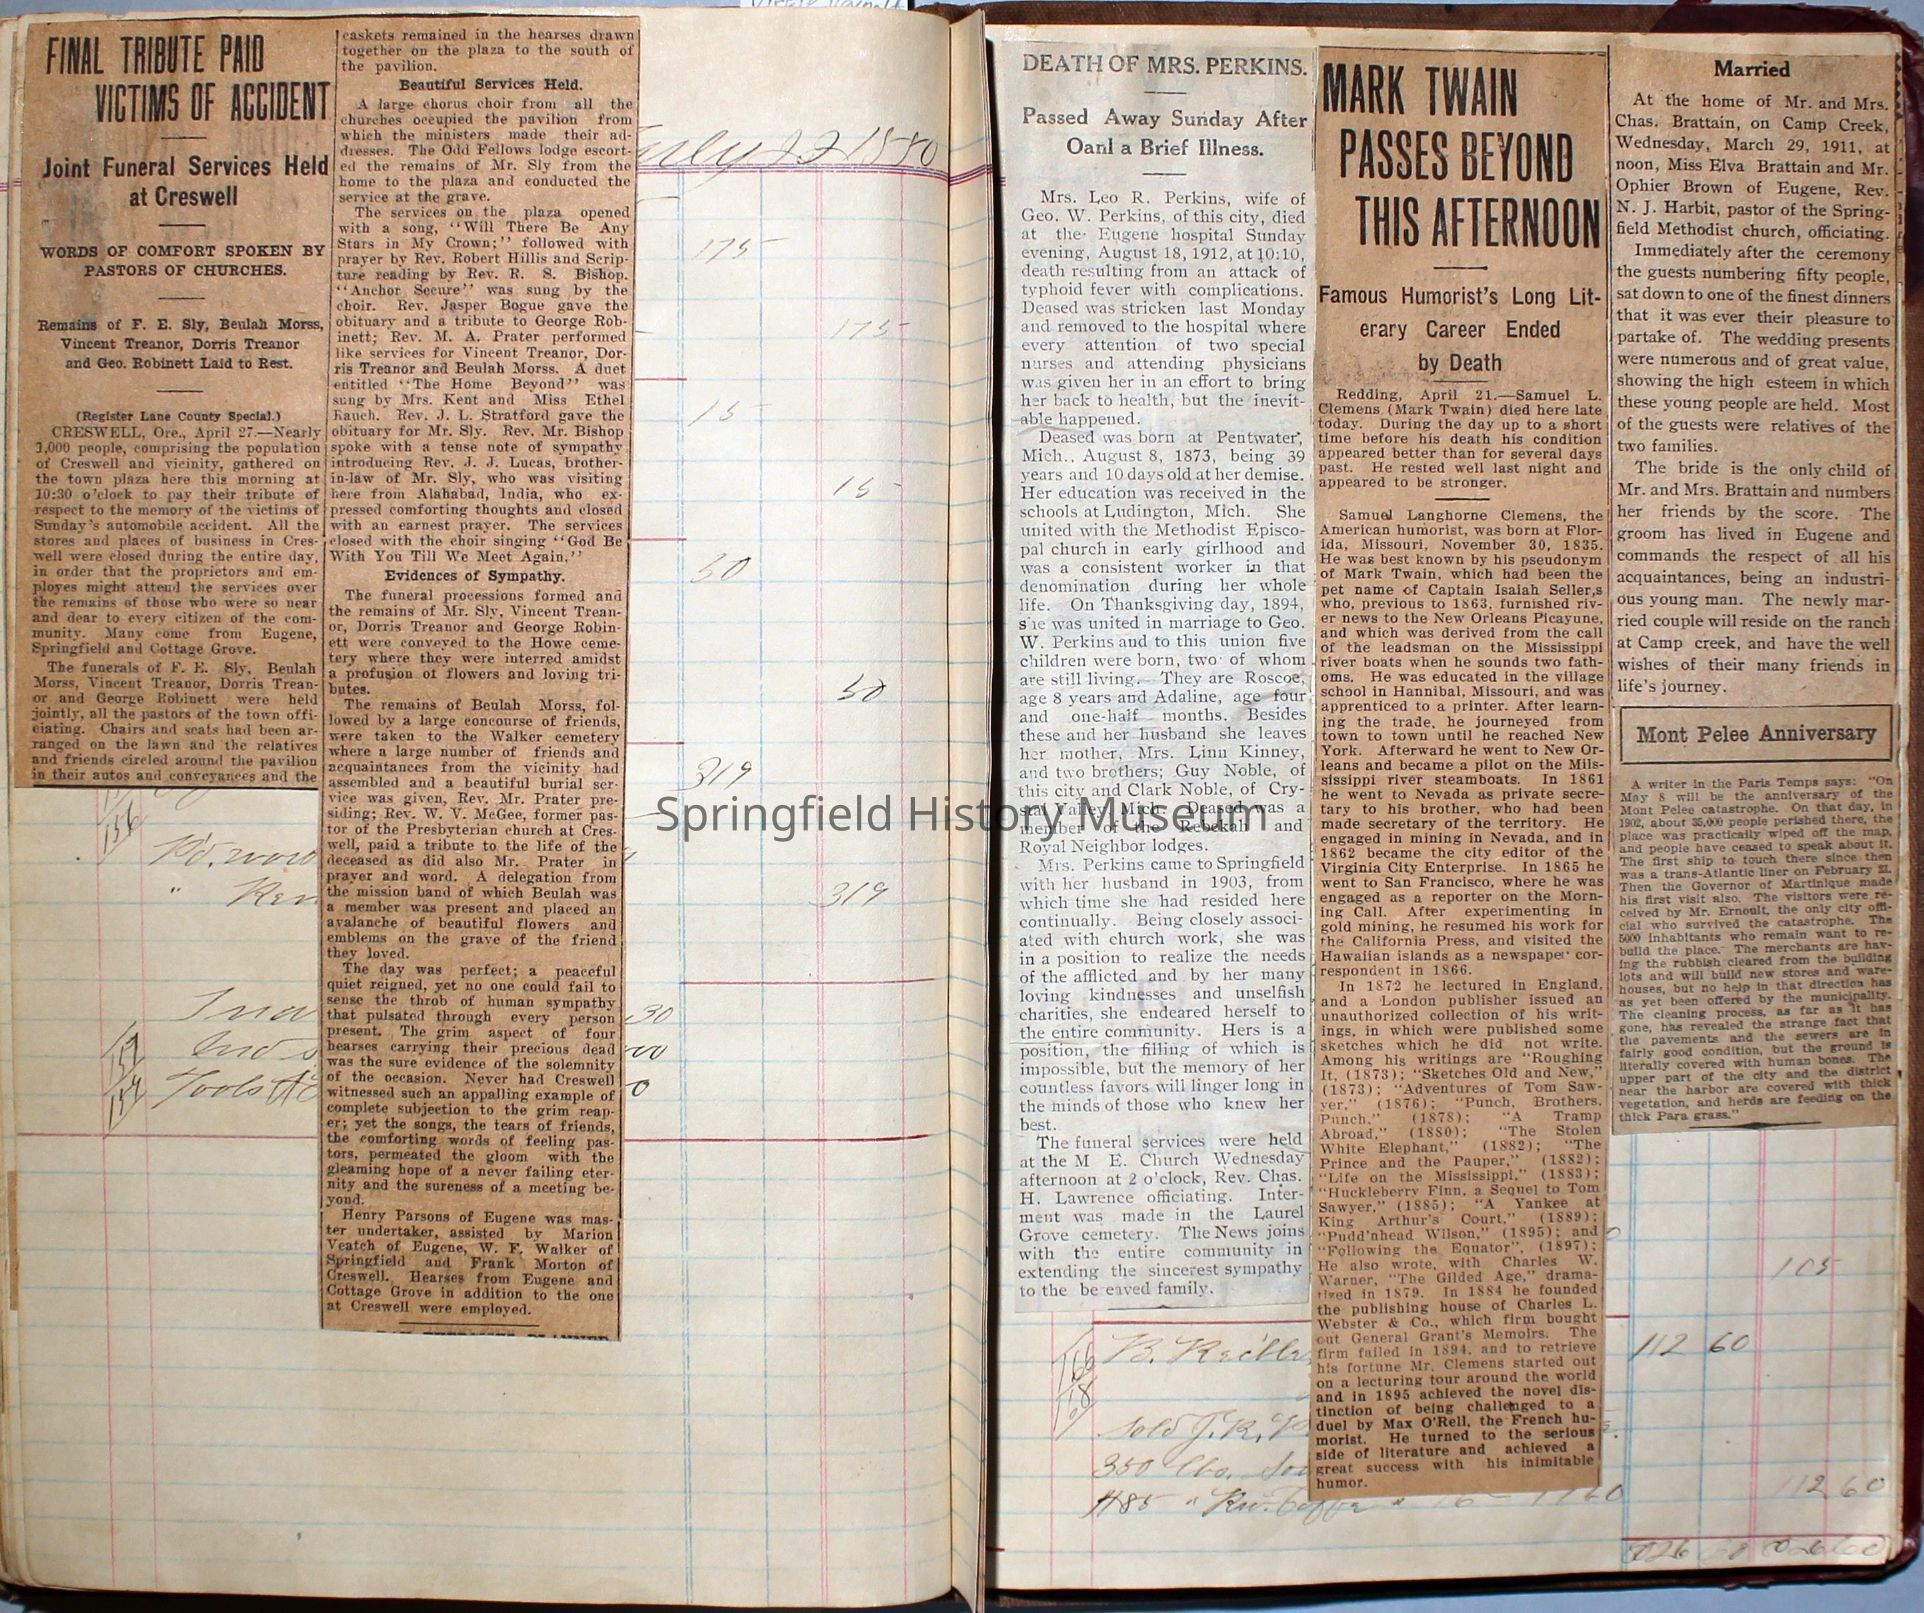 FINAL TRIBUTE PAID
VICTIMS OF ACCIDENT
Joint Funeral Services Held
at Creswell
WORDS OF COMFORT SPOKEN BY
PASTORS OF CHURCHES.
Remains of F. E. Sly, Beulah Morss,
Vincent Treanor, Dorris Treanor
and Geo. Robinett Laid to Rest.
(Register Lane County Special.)
CRESWELL, Ore., April 27.—Nearly
1,000 people, comprising the population
of Creswell and vicinity, gathered on
the town plaza here this morning at
10:30 o'clock to pay their tribute of
respect to the memory of the victims of
Sunday's automobile accident. All the
stores and places of business in Cres-
well were closed during the entire day,
in order that the proprietors and em-
ployes might attend the services over
the remains of those who were so near
and dear to every citizen of the com-
munity. Many come from Eugene,
Springfield and Cottage Grove.
The funerals of F. E. Sly, Beulah
Morss, Vincent Treanor, Dorris Trean-
or and George Robinett were held
jointly, all the pastors of the town offi-
ciating. Chairs and seats had been ar-
ranged on the lawn and the relatives
and friends circled around the pavilion
in their autos and conveyances and the
caskets remained in the hearses drawn
together on the plaza to the south of
the pavilion.
Beautiful Services Held.
A large chorus choir from all the
churches occupied the pavilion from
which the ministers made their ad-
dresses. The Odd Fellows lodge escort-
ed the remains of Mr. Sly from the
home to the plaza and conducted the
service at the grave.
The services on the plaza opened
with a song, "Will There Be Any
Stars in My Crown;" followed with
prayer by Rev. Robert Hillis and Scrip-
ture reading by Rev. R. S. Bishop.
"Anchor Secure" was sung by the
choir. Rev. Jasper Bogue gave the
obituary and a tribute to George Rob-
inett; Rev. M. A. Prater performed
like services for Vincent Treanor, Dor-
ris Treanor and Beulah Morss. A duet
entitled "The Home Beyond" was
sung by Mrs. Kent and Miss Ethel
Kauch. Rev. J. L. Stratford gave the
obituary for Mr. Sly. Rev. Mr. Bishop
spoke with a tense note of sympathy
introducing Rev. J. J. Lucas, brother-
in-law of Mr. Sly, who was visiting
here from Alahabad, India, who ex-
pressed comforting thoughts and closed
with an earnest prayer. The services
closed with the choir singing "God Be
With You Till We Meet Again."
Evidences of Sympathy.
The funeral processions formed and
the remains of Mr. Sly, Vincent Trean-
or, Dorris Treanor and George Robin-
ett were conveyed to the Howe ceme-
tery where they were interred amidst
a profusion of flowers and loving tri-
butes.
The remains of Beulah Morss, fol-
lowed by a large concourse of friends,
were taken to the Walker cemetery
where a large number of friends and
acquaintances from the vicinity had
assembled and a beautiful burial ser-
vice was given, Rev. Mr. Prater pre-
siding; Rev. W. V. McGee, former pas-
tor of the Presbyterian church at Cres-
well, paid a tribute to the life of the
deceased as did also Mr. Prater in
prayer and word. A delegation from
the mission band of which Beulah was
a member was present and placed an
avalanche of beautiful flowers and
emblems on the grave of the friend
they loved.
The day was perfect; a peaceful
quiet reigned, yet no one could fail to
sense the throb of human sympathy
that pulsated through every person
present. The grim aspect of four
hearses carrying their precious dead
was the sure evidence of the solemnity
of the occasion. Never had Creswell
witnessed such an appalling example of
complete subjection to the grim reap-
er; yet the songs, the tears of friends,
the comforting words of feeling pas-
tors, permeated the gloom with the
gleaming hope of a never failing eter-
nity and the sureness of a meeting be-
yond.
Henry Parsons of Eugene was mas-
ter undertaker, assisted by Marion
Veatch of Eugene, W. F. Walker of
Springfield and Frank Morton of
Creswell. Hearses from Eugene and
Cottage Grove in addition to the one
at Creswell were employed.
1880
175
175
15
15
50
50
319
319
156
30
Tools
DEATH OF MRS. PERKINS.
Passed Away Sunday After
Oanl a Brief Illness.
Mrs. Leo R. Perkins, wife of
Geo. W. Perkins, of this city, died
at the Eugene hospital Sunday
evening, August 18, 1912, at 10:10,
death resulting from an attack of
typhoid fever with complications.
Deased was stricken last Monday
and removed to the hospital where
every attention of two special
nurses and attending physicians
was given her in an effort to bring
her back to health, but the inevit-
able happened.
Deased was born at Pentwater,
Mich., August 8, 1873, being 39
years and 10 days old at her demise.
Her education was received in the
schools at Ludington, Mich. She
united with the Methodist Episco-
pal church in early girlhood and
was a consistent worker in that
denomination during her whole
life. On Thanksgiving day, 1894,
s'ie was united in marriage to Geo.
W. Perkins and to this union five
children were born, two of whom
are still living. They are Roscoe,
age 8 years and Adaline, age four
and one-half months. Besides
these and her husband she leaves
her mother, Mrs. Linn Kinney,
and two brothers; Guy Noble, of
this city and Clark Noble, of Cry-
stal Valley, Mich. Deased was a
member of the Rebekah and
Royal Neighbor lodges.
Mrs. Perkins came to Springfield
with her husband in 1903, from
which time she had resided here
continually. Being closely associ-
ated with church work, she was
in a position to realize the needs
of the afflicted and by her many
loving kindnesses and unselfish
charities, she endeared herself to
the entire community. Hers is a
position, the filling of which is
impossible, but the memory of her
countless favors will linger long in
the minds of those who knew her
best.
The funeral services were held
at the M E. Church Wednesday
afternoon at 2 o'clock, Rev. Chas.
H. Lawrence officiating. Inter-
ment was made in the Laurel
Grove cemetery. The News joins
with the entire community in
extending the sincerest sympathy
to the be eaved family.
MARK TWAIN
PASSES BEYOND
THIS AFTERNOON
Famous Humorist's Long Lit-
erary Career Ended
by Death
Redding, April 21.—Samuel L.
Clemens (Mark Twain) died here late
today. During the day up to a short
time before his death his condition
appeared better than for several days
past. He rested well last night and
appeared to be stronger.
Samuel Langhorne Clemens, the
American humorist, was born at Flor-
ida, Missouri, November 30, 1835.
He was best known by his pseudonym
of Mark Twain, which had been the
pet name of Captain Isaiah Seller,s
who, previous to 1863, furnished riv-
er news to the New Orleans Picayune,
and which was derived from the call
of the leadsman on the Mississippi
river boats when he sounds two fath-
oms. He was educated in the village
school in Hannibal, Missouri, and was
apprenticed to a printer. After learn-
ing the trade, he journeyed from
town to town until he reached New
York. Afterward he went to New Or-
leans and became a pilot on the Mils-
sissippi river steamboats. In 1861
he went to Nevada as private secre-
tary to his brother, who had been
made secretary of the territory. He
engaged in mining in Nevada, and in
1862 became the city editor of the
Virginia City Enterprise. In 1865 he
went to San Francisco, where he was
engaged as a reporter on the Morn-
ing Call. After experimenting in
gold mining, he resumed his work for
the California Press, and visited the
Hawaiian islands as a newspaper cor-
respondent in 1866.
In 1872 he lectured in England,
and a London publisher issued an
unauthorized collection of his writ-
ings, in which were published some
sketches which he did not write.
Among his writings are "Roughing
It, (1873); "Sketches Old and New,"
(1873); "Adventures of Tom Saw-
yer," (1876); "Punch, Brothers,
Punch," (1878); "A Tramp
Abroad," (1880); "The Stolen
White Elephant," (1882); "The
Prince and the Pauper," (1882);
"Life on the Mississippi," (1883);
"Huckleberry Finn, a Sequel to Tom
Sawyer," (1885); "A Yankee at
King Arthur's Court," (1889);
"Pudd'nhead Wilson," (1895); and
"Following the Equator", (1897);
He also wrote, with Charles W.
Warner, "The Gilded Age," drama-
tized in 1879. In 1884 he founded
the publishing house of Charles L.
Webster & Co., which firm bought
out General Grant's Memoirs. The
firm failed in 1894, and to retrieve
his fortune Mr. Clemens started out
on a lecturing tour around the world
and in 1895 achieved the novel dis-
tinction of being challenged to a
duel by Max O'Rell, the French hu-
morist. He turned to the serious
side of literature and achieved a
great success with his inimitable
humor.
Married
At the home of Mr. and Mrs.
Chas. Brattain, on Camp Creek,
Wednesday, March 29, 1911, at
noon, Miss Elva Brattain and Mr.
Ophier Brown of Eugene, Rev.
N. J. Harbit, pastor of the Spring-
field Methodist church, officiating.
Immediately after the ceremony
the guests numbering fifty people,
sat down to one of the finest dinners
that it was ever their pleasure to
partake of. The wedding presents
were numerous and of great value,
showing the high esteem in which
these young people are held. Most
of the guests were relatives of the
two families.
The bride is the only child of
Mr. and Mrs. Brattain and numbers
her friends by the score. The
groom has lived in Eugene and
commands the respect of all his
acquaintances, being an industri-
ous young man. The newly mar-
ried couple will reside on the ranch
at Camp creek, and have the well
wishes of their many friends in
life's journey.
Mont Pelee Anniversary
A writer in the Paris Temps says: "On
May 8 will be the anniversary of the
Mont Pelee catastrophe. On that day, in
1902, about 35,000 people perished there, the
place was practically wiped off the map,
and people have ceased to speak about it.
The first ship to touch there since then
was a trans-Atlantic liner on February 21.
Then the Governor of Martinique made
his first visit also. The visitors were re-
ceived by Mr. Ernoult, the only city offi-
cial who survived the catastrophe. The
5000 inhabitants who remain want to re-
build the place. The merchants are hav-
ing the rubbish cleared from the building
lots and will build new stores and ware-
houses, but no help in that direction has
as yet been offered by the municipality.
The cleaning process, as far as it has
gone, has revealed the strange fact that
the pavements and the sewers are in
fairly good condition, but the ground is
literally covered with human bones. The
upper part of the city and the district
near the harbor are covered with thick
vegetation, and herds are feeding on the
thick Para grass."
105
112 60
Sold J. R.
350 lbs.
112 60
Springfield History Museum